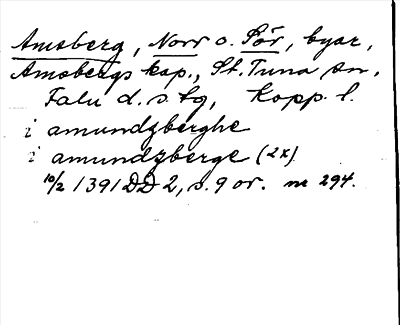 Amsberg, Norr o. Sör, byar,
Amsbergs kap., St. Tuna sn,
Falu d. s. tg, Kopp. l.
i amundzberghe
i amundzberge (2x)
10/2 1391 DD 2, s. 9 or. nr 294.